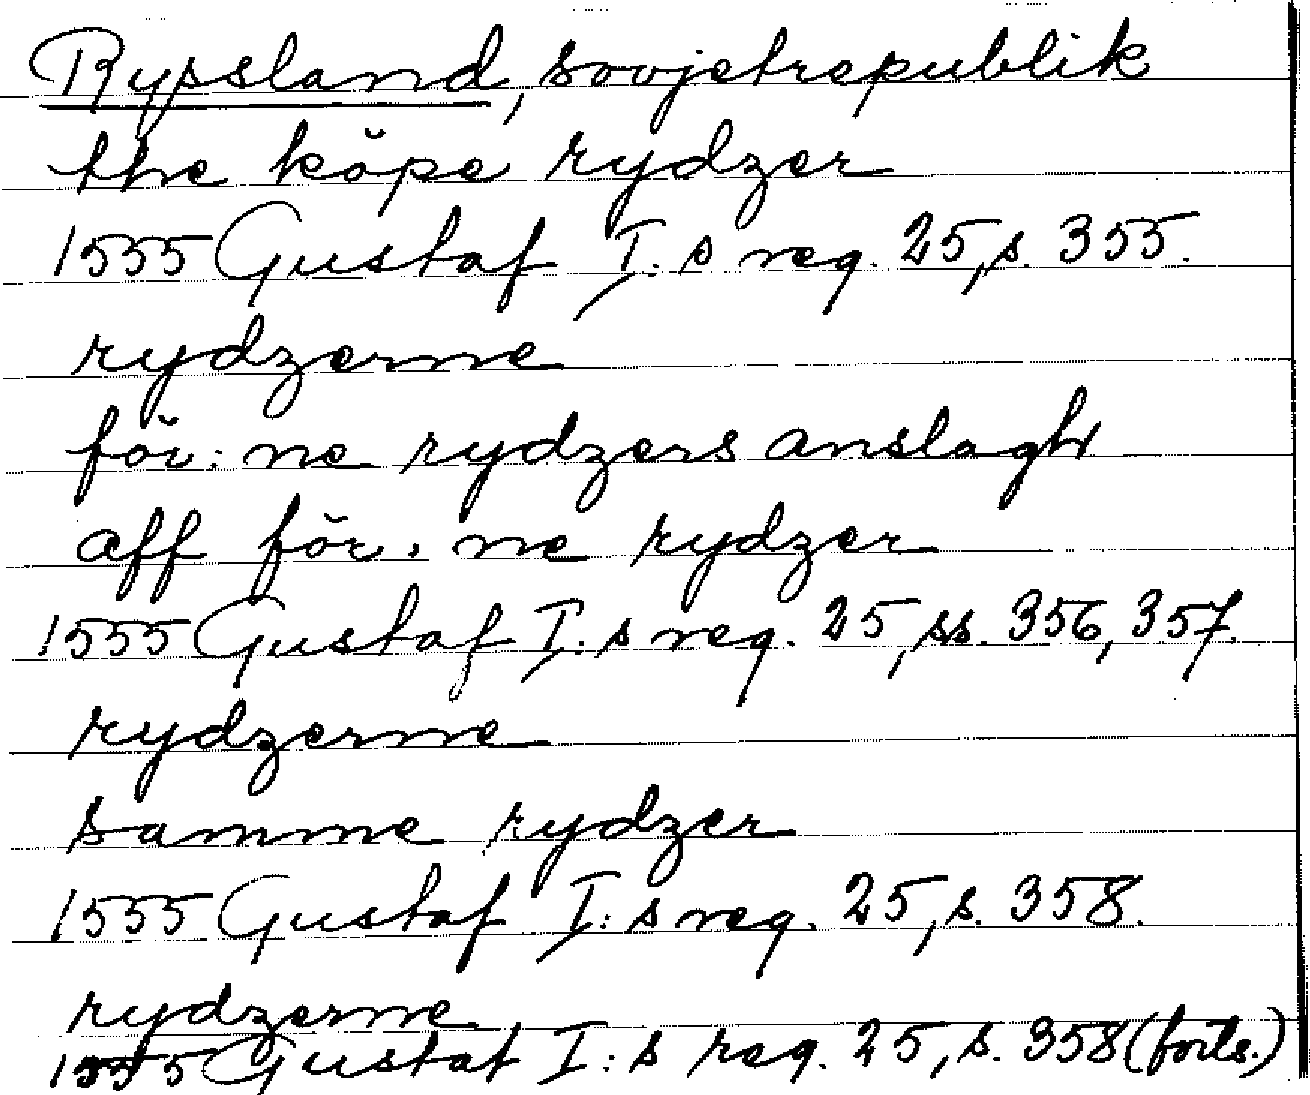 Ryssland, sovjetrepublik
the köpe rydzer
1555 Gustaf I:s reg. 25, s. 355.
rydzerne
för:ne rydzers anslagh
aff för:ne rydzer
1555 Gustaf I:s reg. 25, ss. 356, 357.
rydzerne
samme rydzer
1555 Gustaf I:s reg. 25, s. 358.
rydzerne
1555 Gustaf I:s reg. 25, s. 358 (forts.)